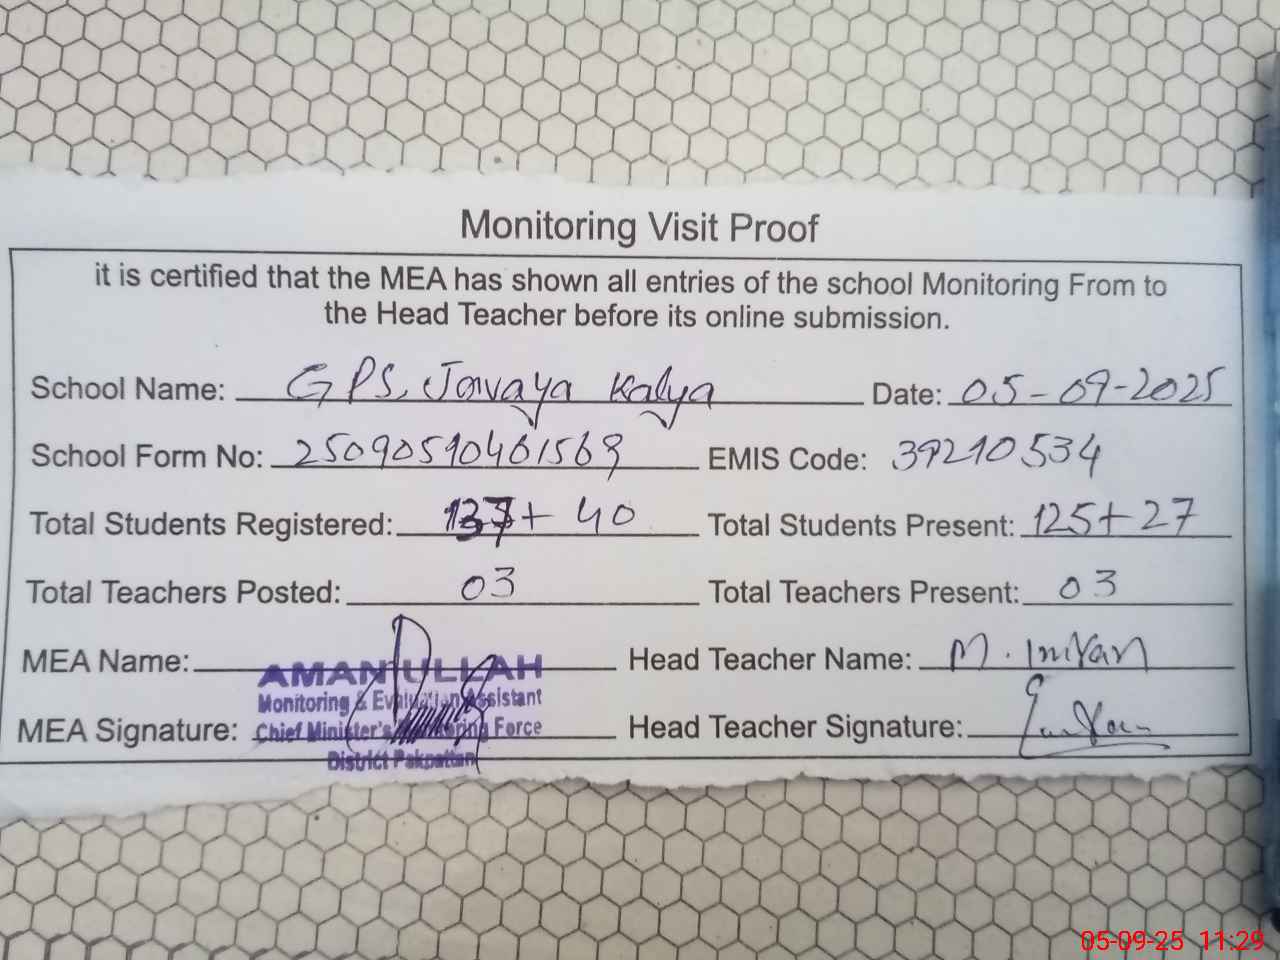 Monitoring Visit Proof
it is certified that the MEA has shown all entries of the school Monitoring From to
the Head Teacher before its online submission.
School Name: GPS, Javaya Kalya Date: 05-09-2025
School Form No: 25090510461569 EMIS Code: 39210534
Total Students Registered: 137+ 40 Total Students Present: 125+27
Total Teachers Posted: 03 Total Teachers Present: 03
MEA Name: AMAN ULLAH Head Teacher Name: M. Imran
Monitoring & Evaluation Assistant
MEA Signature: Chief Minister's Monitoring Force Head Teacher Signature:
District Pakpattan
05-09-25 11:29